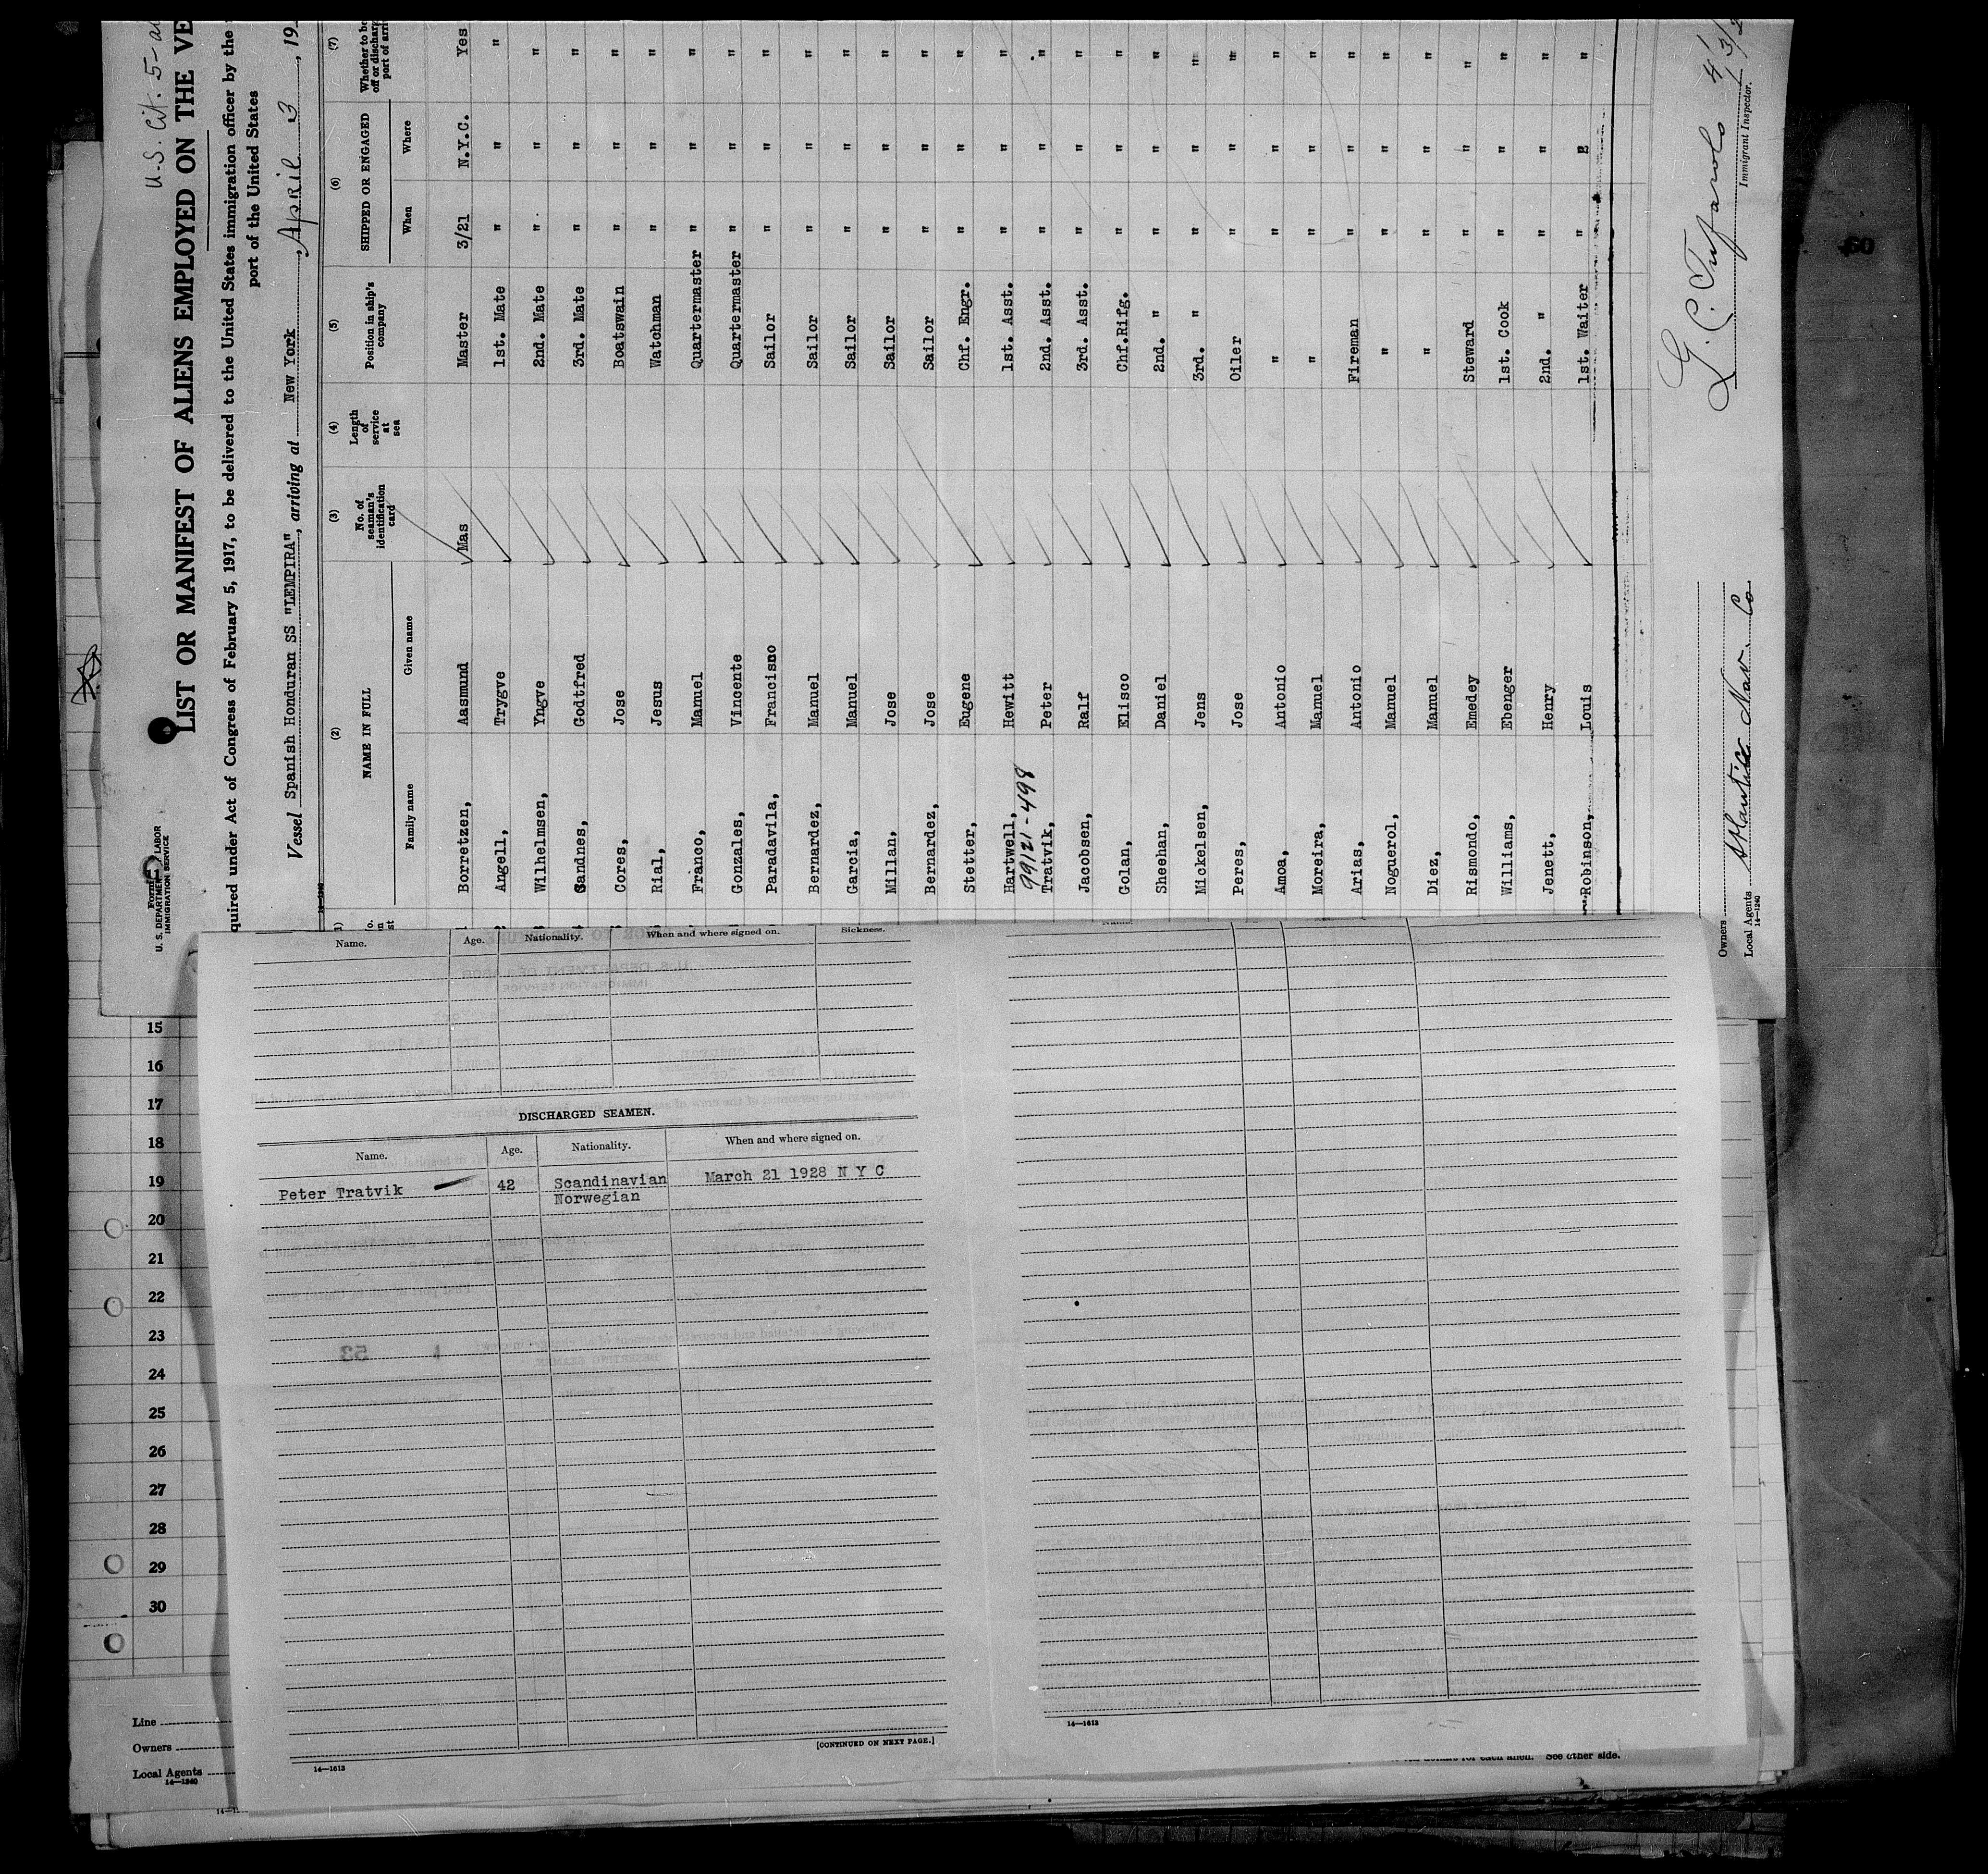 U.S. Cit. 5-
LIST OR MANIFEST OF ALIENS EMPLOYED ON THE VE
quired under Act of Congress of February 5, 1917, to be delivered to the United States immigration officer by the
port of the United States
U. S. DEPARTMENT LABOR
IMMIGRATION SERVICE
Vessel Spanish Honduran SS "LEMPIRA", arriving at New York, April 3, 19
(2) (3) (4) (5) (6) (7)
NAME IN FULL
Family name Given name
No. of seaman's identification card
Length of service at sea
Position in ship's company
SHIPPED OR ENGAGED
When Where
Whether to be
off or discharg
port of arri
Borretzen, Aasmund Mas Master 3/21 N.Y.C. Yes
Angell, Trygve 1st. Mate " " "
Wilhelmsen, Yngve 2nd. Mate " " "
Sandnes, Godtfred 3rd. Mate " " "
Cores, Jose Boatswain " " "
Rial, Jesus Watchman " " "
Franco, Manuel Quartermaster " " "
Gonzales, Vincente Quartermaster " " "
Paradavila, Francisno Sailor " " "
Bernardez, Manuel Sailor " " "
Garcia, Manuel Sailor " " "
Millan, Jose Sailor " " "
Bernardez, Jose Sailor " " "
Stetter, Eugene Chf. Engr. " " "
Hartwell, Hewitt 1st. Asst. " " "
99121-498
Tratvik, Peter 2nd. Asst. " " "
Jacobsen, Ralf 3rd. Asst. " " "
Golan, Elisco Chf.Rifg. " " "
Sheehan, Daniel 2nd. " " " "
Mickelsen, Jens 3rd. " " " "
Peres, Jose Oiler " " "
Amoa, Antonio " " " "
Moreira, Mamuel " " " "
Arias, Antonio Fireman " " "
Noguerol, Manuel " " " "
Diez, Manuel " " " "
Rismondo, Emedey Steward " " "
Williams, Ebenger 1st. Cook " " "
Jenett, Henry 2nd. " " " "
Robinson, Louis 1st. Waiter " " "
Owners
Local Agents Atlantic Nav. Co
14—1240
Immigrant Inspector.
Name. Age. Nationality. When and where signed on. Sickness.
DISCHARGED SEAMEN.
Name. Age. Nationality. When and where signed on.
Peter Tratvik 42 Scandinavian March 21 1928 N Y C
Norwegian
[CONTINUED ON NEXT PAGE.]
14—1613
14—1613
15
16
17
18
19
20
21
22
23
24
25
26
27
28
29
30
Line
Owners
Local Agents
14—1240
for each alien. See other side.
60